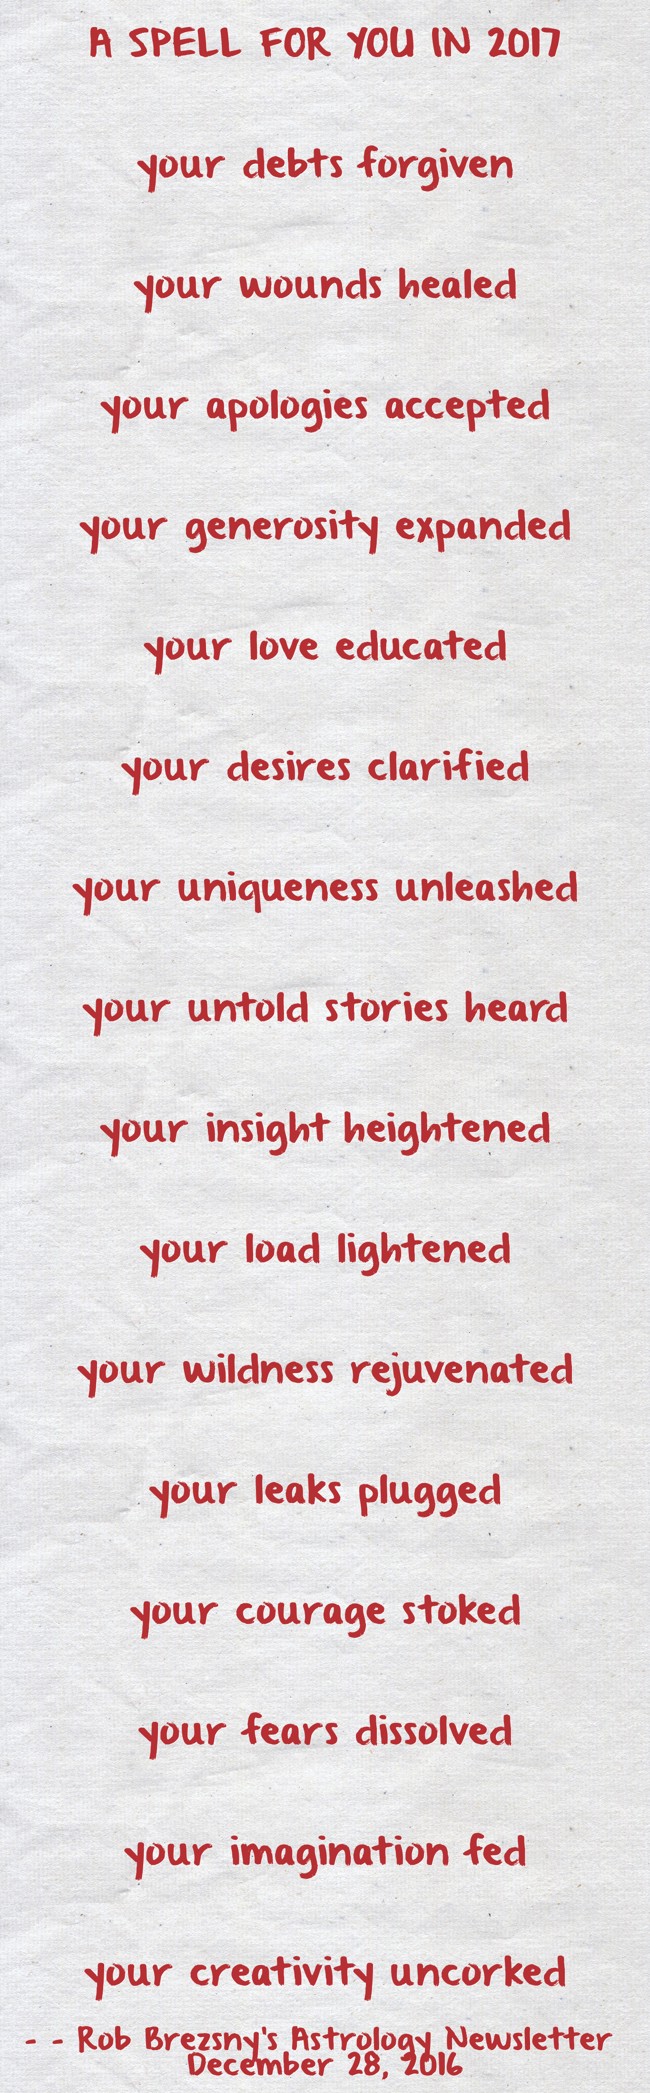 A SPELL FOR YOU IN 2017
your debts forgiven
your wounds healed
your apologies accepted
your generosity expanded
your love educated
your desires clarified
your uniqueness unleashed
your untold stories heard
your insight heightened
your load lightened
your wildness rejuvenated
your leaks plugged
your courage stoked
your fears dissolved
your imagination fed
your creativity uncorked
- - Rob Brezsny's Astrology Newsletter
December 28, 2016